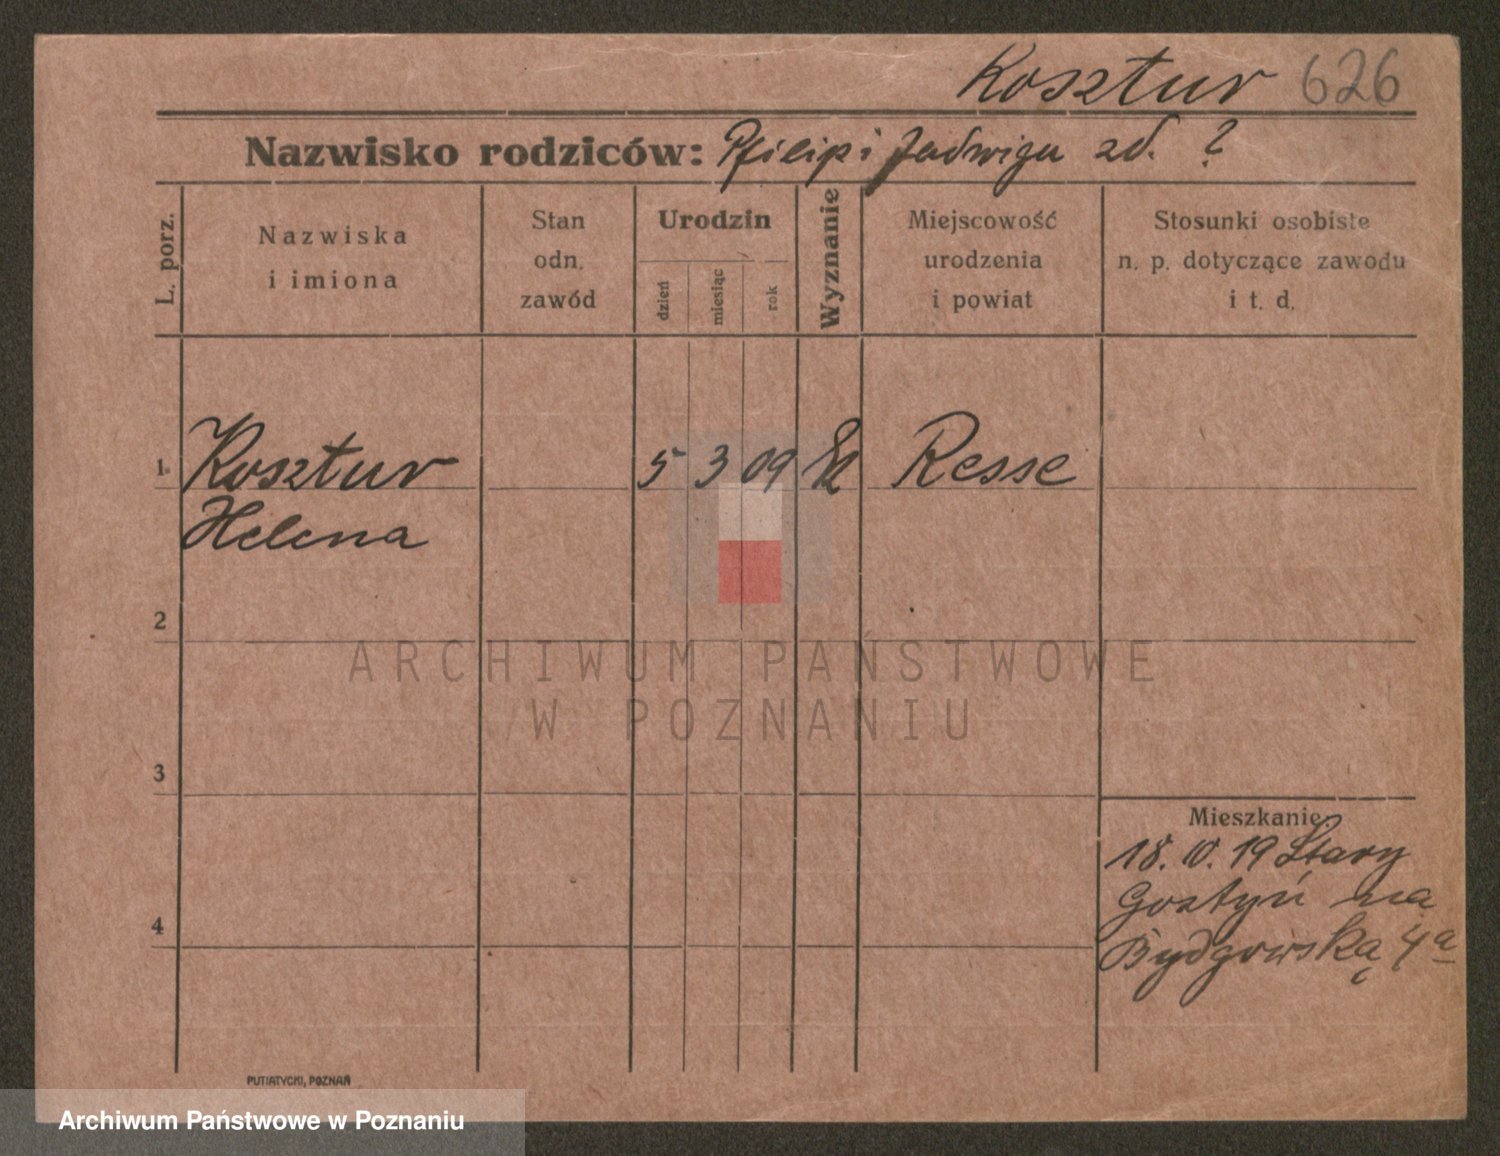 Kosztur 626
Nazwisko rodziców: Pfilip i Jadwiga zd. ?
L. porz.
Nazwiska
i imiona
Stan
odn.
zawód
Urodzin
dzień
miesiąc
rok
Wyznanie
Miejscowość
urodzenia
i powiat
Stosunki osobiste
n. p. dotyczące zawodu
i t. d.
1. Kosztur 5 3 09 Resse
Helena
2
ARCHIWUM PAŃSTWOWE
W POZNANIU
3
Mieszkanie:
18. IV. 19 Stary
Gostyń na
4
Bydgowską 4a
PUTIATYCKI, POZNAŃ
Archiwum Państwowe w Poznaniu